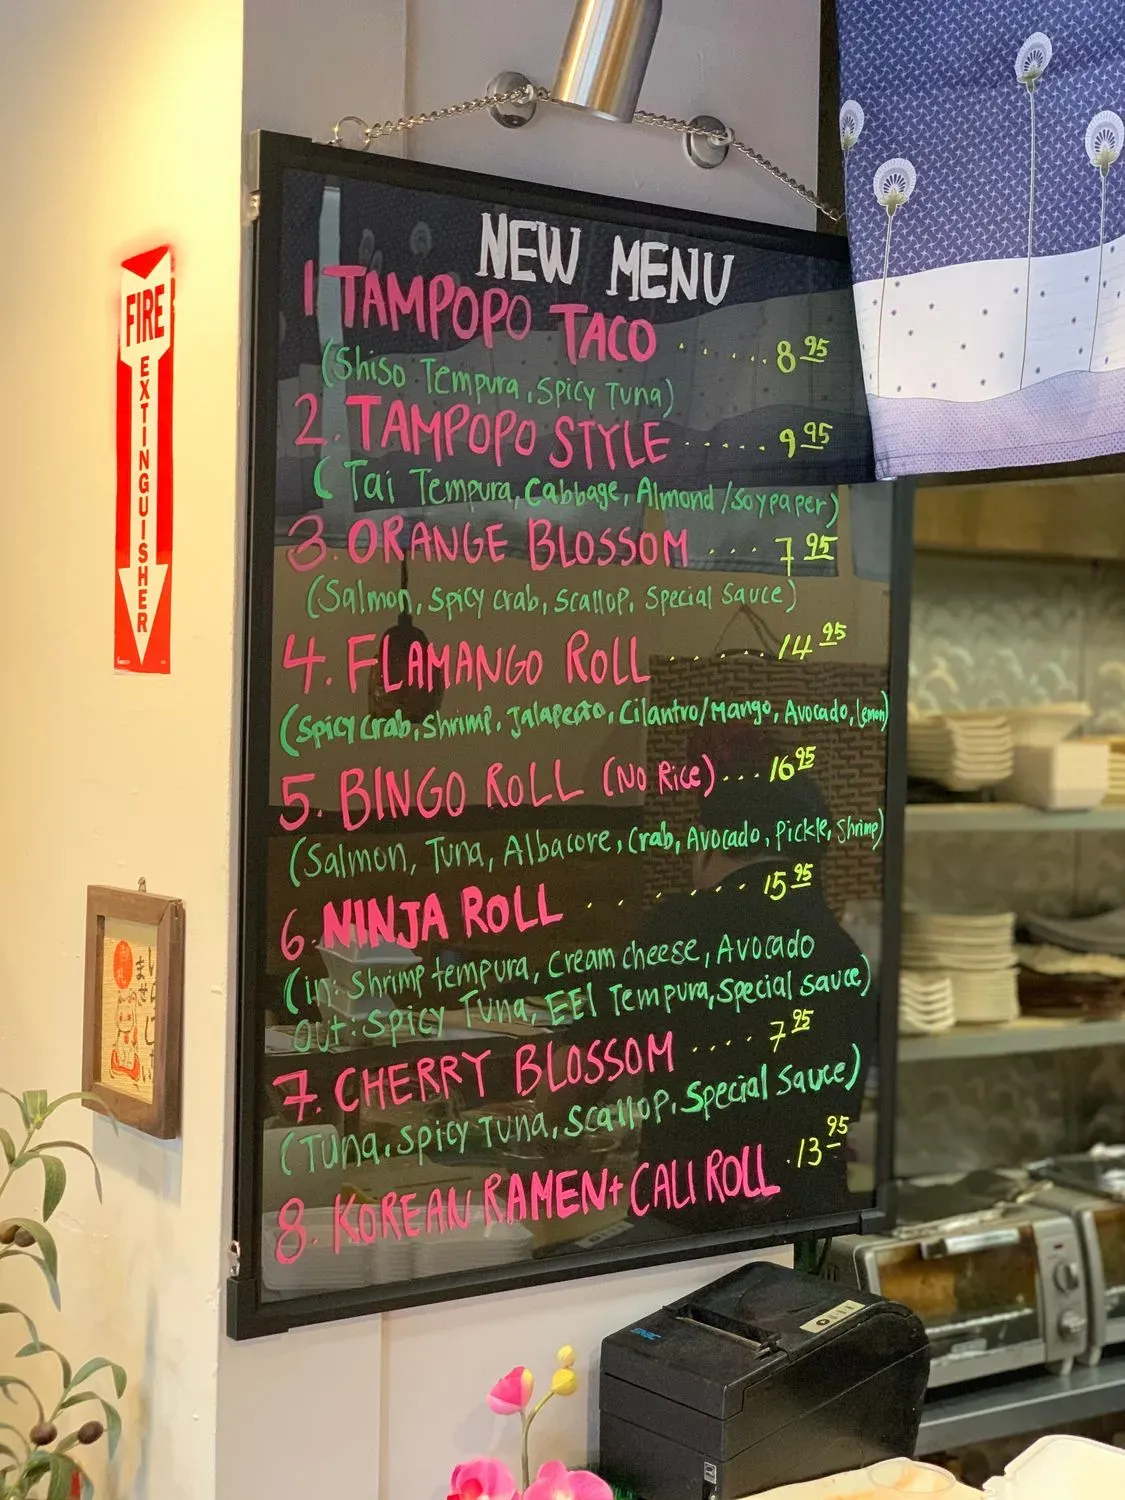 NEW MENU
1 TAMPOPO TACO ...... 8.95
(Shiso Tempura, Spicy Tuna)
2. TAMPOPO STYLE ...... 9.95
(Tai Tempura, Cabbage, Almond/soypaper)
3. ORANGE BLOSSOM .... 7.95
(Salmon, Spicy crab, Scallop, Special Sauce)
4. FLAMANGO ROLL ...... 14.95
(Spicy crab, Shrimp, Jalapeño, Cilantro/Mango, Avocado, lemon)
5. BINGO ROLL (No Rice) ... 16.95
(Salmon, Tuna, Albacore, Crab, Avocado, Pickle, Shrimp)
6. NINJA ROLL ....... 15.95
(in: Shrimp tempura, Cream cheese, Avocado
Out: Spicy Tuna, EEl Tempura, Special sauce)
7. CHERRY BLOSSOM .... 7.95
(Tuna, Spicy Tuna, Scallop, Special Sauce)
8. KOREAN RAMEN + CALI ROLL . 13.95
FIRE
EXTINGUISHER
いらっしゃい
ませ